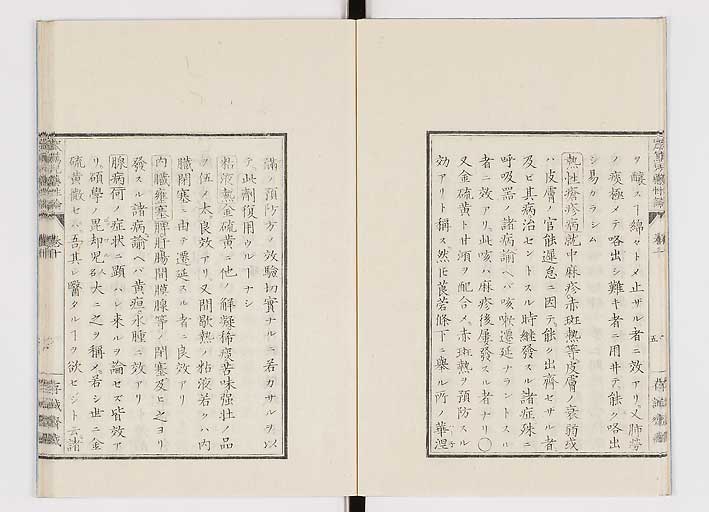 ヲ醸スヿ綿々トメ止ザル者ニ效アリ又肺労
ノ痰極メテ咯出シ難キ者ニ用井テ能ク咯出
シ易カラシム
熱性瘡疹病就中麻疹赤斑熱等皮膚ノ衰弱或
ハ皮膚ノ官能遅怠ニ因テ能ク出齊セザル者
及ビ其病治セントスル時継發スル諸症殊ニ
呼吸器ノ諸病諭ヘバ咳嗽遷延ナラントスル
者ニ效アリ此咳ハ麻疹後屢發スル者ナリ〇
又金硫黄ト甘汞ヲ配合メ赤斑熱ヲ預防スル
效アリト稱ス然𪜈莨菪條下ニ舉ル所ノ華涅
満ノ預防方ノ效驗切實ナルニ若カザルヲ以
テ此劑復用ウルヿナシ
粘液熱金硫黄ニ他ノ解凝稀痰苦味強壮ノ品
ヲ伍メ太良效アリ又間歇熱ノ粘液若クハ内
臓閉塞ニ由テ遷延スル者ニ良效アリ
内臓壅塞脾肝腸間膜腺等ノ閉塞及ヒ之ヨリ
發スル諸病諭ヘバ黄疸水腫ニ效アリ
腺病何ノ症状ニ顕ハレ来ルヲ論セズ皆效ア
リ碩學ノ毘却児名人大ニ之ヲ稱メ若シ世ニ金
硫黄微セバ吾其レ醫タルヿヲ欲セジト云諸